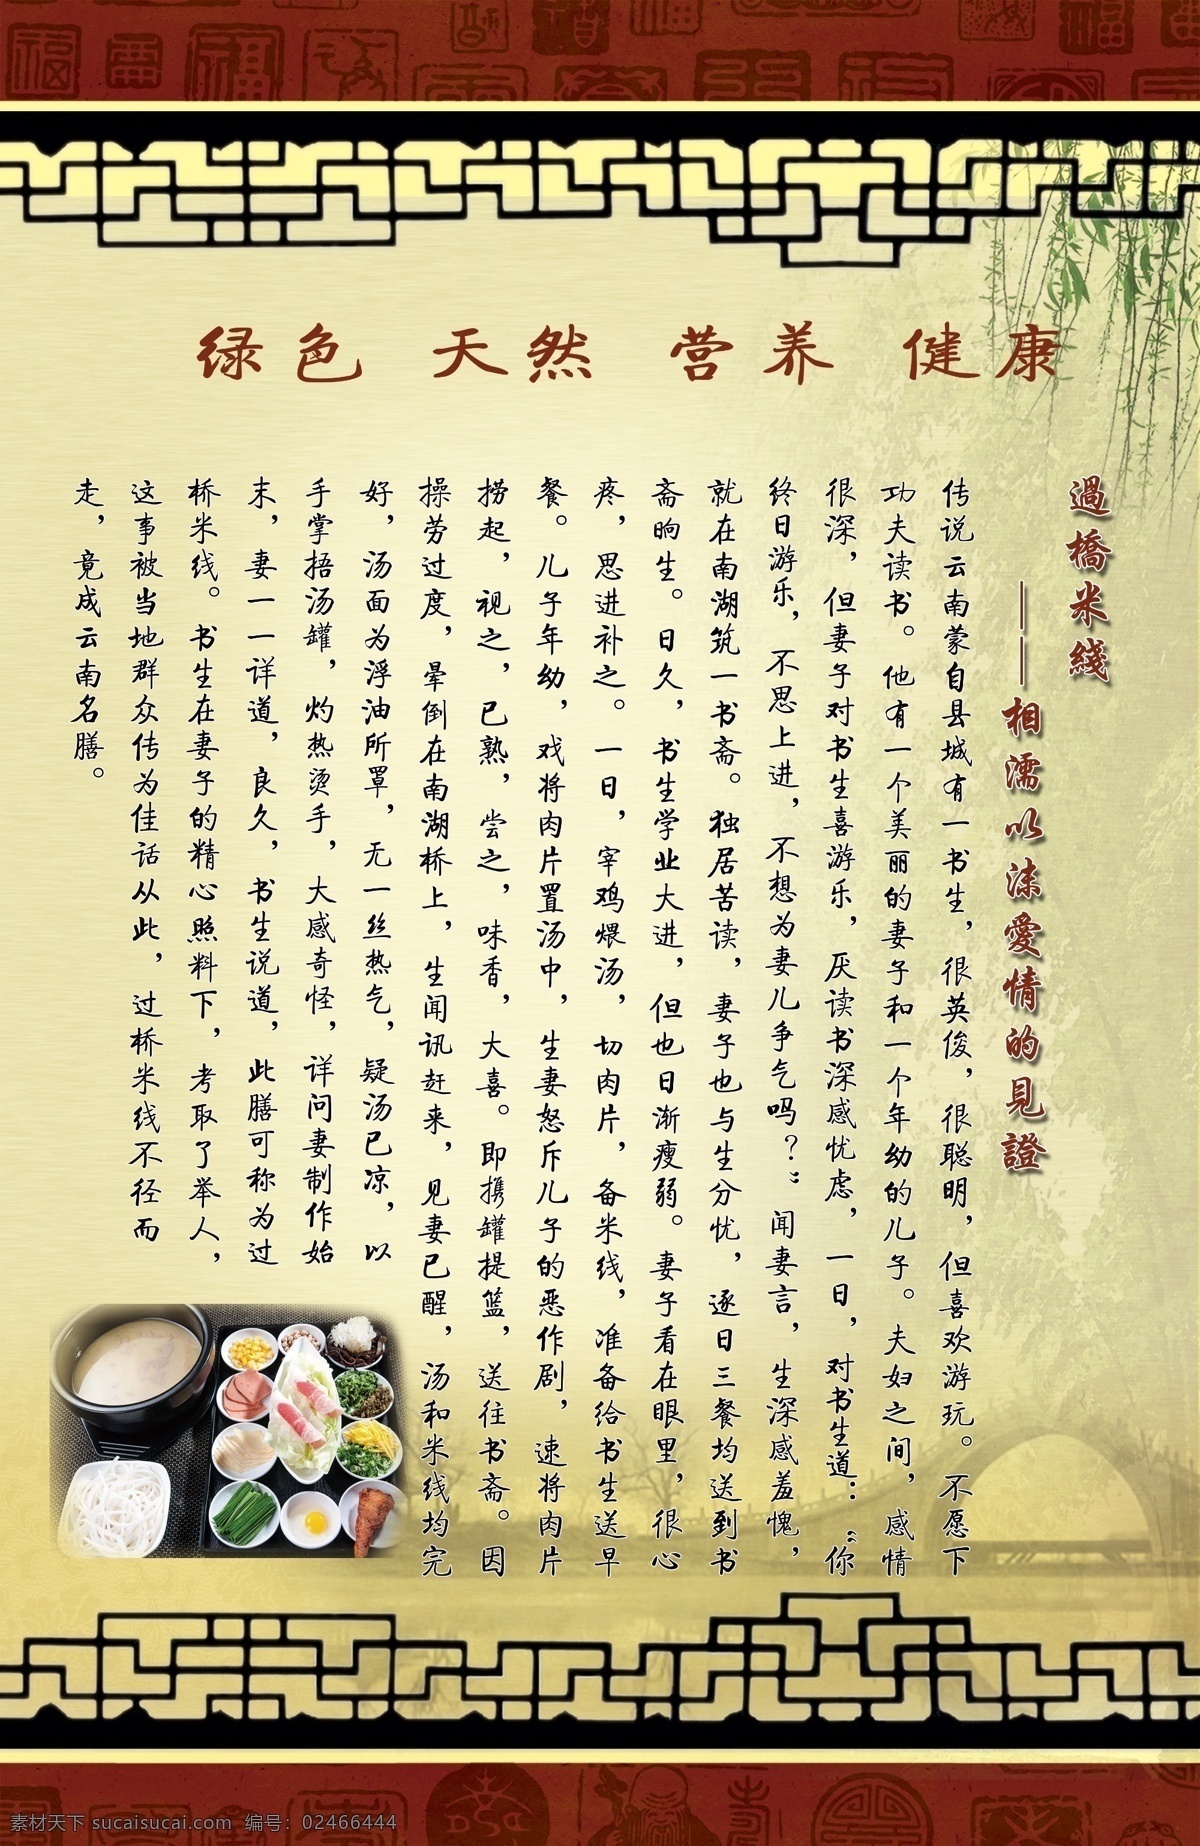 绿色 天然 营养 健康
過橋米綫
——相濡以沫愛情的見證
传说云南蒙自县城有一书生，很英俊，很聪明，但喜欢游玩。不愿下
功夫读书。他有一个美丽的妻子和一个年幼的儿子。夫妇之间，感情
很深，但妻子对书生喜游乐，厌读书深感忧虑，一日，对书生道：“你
终日游乐，不思上进，不想为妻儿争气吗？”闻妻言，生深感羞愧，
就在南湖筑一书斋。独居苦读，妻子也与生分忧，逐日三餐均送到书
斋晌生。日久，书生学业大进，但也日渐瘦弱。妻子看在眼里，很心
疼，思进补之。一日，宰鸡煨汤，切肉片，备米线，准备给书生送早
餐。儿子年幼，戏将肉片置汤中，生妻怒斥儿子的恶作剧，速将肉片
捞起，视之，已熟，尝之，味香，大喜。即携罐提篮，送往书斋。因
操劳过度，晕倒在南湖桥上，生闻讯赶来，见妻已醒，汤和米线均完
好，汤面为浮油所罩，无一丝热气，疑汤已凉，以
手掌捂汤罐，灼热烫手，大感奇怪，详问妻制作始
末，妻一一详道，良久，书生说道，此膳可称为过
桥米线。书生在妻子的精心照料下，考取了举人，
这事被当地群众传为佳话从此，过桥米线不径而
走，竟成云南名膳。
素材天下 sucaisucai.com 编号：02466444